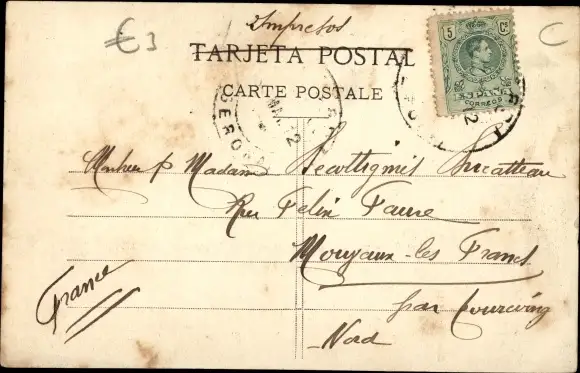 € 3
Impresos
C
TARJETA POSTAL
CARTE POSTALE
5 Cs
ESPAÑA
CORREOS
GERONA
12
12
Madame
Rue Felix Faure
Mouvaux-les Francs
par Tourcoing
Nord
France